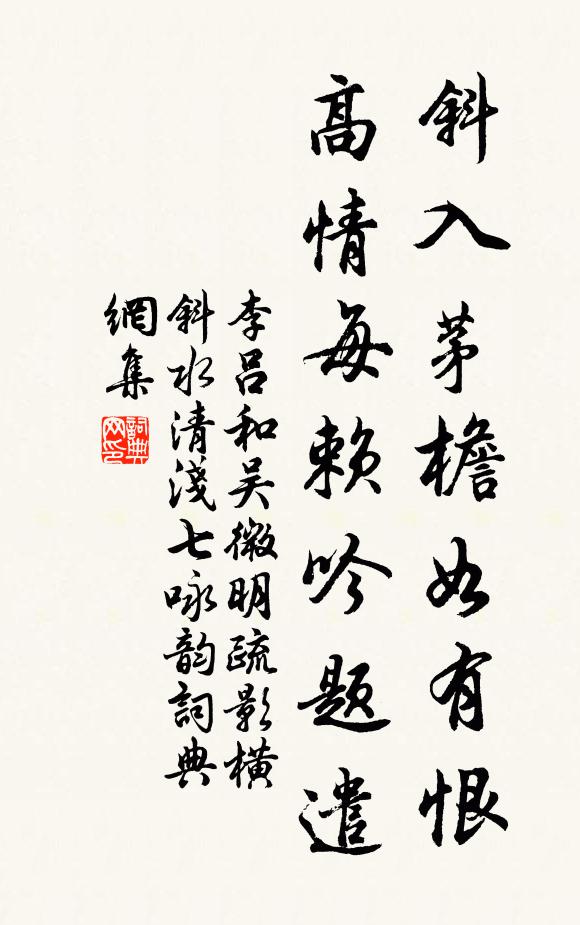 斜入茅檐如有恨
高情每賴吟題遣
李呂和吴微明疏影橫
斜水清淺七咏韵詞典
網集
詞典
网印